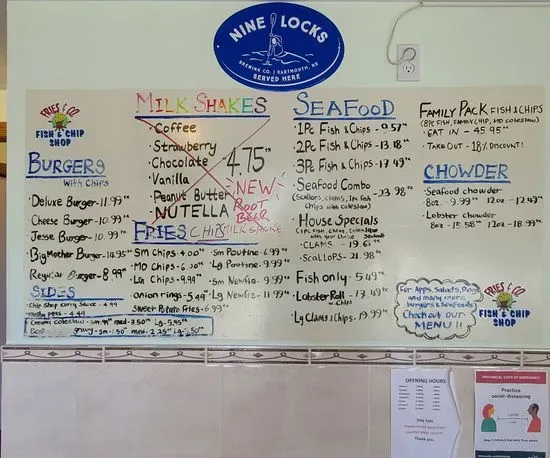 NINE LOCKS
BREWING CO. | DARTMOUTH, NS
SERVED HERE
FRIES & CO
FISH & CHIP
SHOP
BURGERS
With Chips
Deluxe Burger - 11.99
Cheese Burger - 10.99
Jesse Burger - 10.99
Big Mother Burger - 14.95
Regular Burger - 8.99
SIDES
Chip Shop Curry Sauce - 4.99
mushy peas - 4.49
Creamy coleslaw - Sm. med - 3.50 Lg - 5.95
gravy - Sm - 1.50 med - 2.25 Lg - .50
MILK SHAKES
• Coffee
• Strawberry
• Chocolate
• Vanilla
• Peanut Butter
• NUTELLA
4.75
NEW
ROOT
BEER
MILKSHAKE
FRIES CHIPS
Sm Chips - 4.00
MD Chips - 6.
Lg Chips - 9.99
onion rings - 5.49
• Sm Poutine - 6.99
• Lg Poutine - 9.99
• Sm Newfie - 9.99
• Lg Newfie - 11.99
Sweet Potato Fries - 6.99
SEAFOOD
• 1Pc Fish & Chips - 9.57
• 2Pc Fish & Chips - 13.18
3Pc Fish & Chips - 17.49
• Seafood Combo
(Scallops, clams, 1pc fish
chips with coleslaw)
23.98
• House Specials
(1PC fish, chips, coleslaw
with your choice Seafood)
- CLAMS - 19.
- SCALLOPS - 21.98
• Fish only - 5.49
• Lobster Roll - 17.49
& Chips
• Lg Clams & Chips - 19.99
FAMILY PACK FISH & CHIPS
(8PC FISH, FAMILY CHIP, MD COLESLAW)
• EAT IN - 45.95
• TAKE OUT - 18% DISCOUNT!
CHOWDER
• Seafood chowder
8oz - 9.99 12oz - 12.49
• Lobster chowder
8oz - 15.58 12oz - 18.99
For Apps, Salads, Dogs
and many more
burgers & Seafoods
Check out our
MENU !!
FRIES & CO
FISH & CHIP
SHOP
OPENING HOURS
Stay Safe
Thank you
PROVINCIAL STATE OF EMERGENCY
Practice
social-distancing